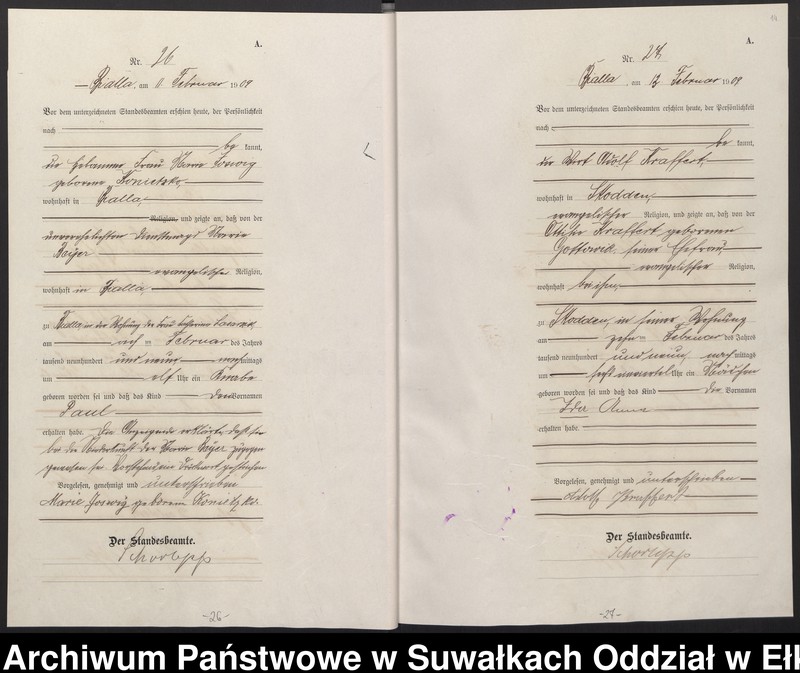 A.
Nr. 26
Bialla, am 11 Februar 1909
Vor dem unterzeichneten Standesbeamten erschien heute, der Persönlichkeit
nach
be kannt,
die Hebamme Frau Marie Joswig
geborene Konietzko,
wohnhaft in Bialla,
Religion, und zeigte an, daß von der
unverehelichten Dienstmagd Marie
Beyer
evangelischer Religion,
wohnhaft in Bialla
zu Bialla in der Wohnung der Frau
am acht ten Februar des Jahres
tausend neunhundert und neun mittags
um elf Uhr ein Knabe
geboren worden sei und daß das Kind den Vornamen
Paul
erhalten habe. Die Anzeigende erklärte, daß sie
bei der Niederkunft der Marie Beyer zugegen
gewesen sei. Vorstehend ein Druckwort gestrichen
Vorgelesen, genehmigt und unterschrieben
Marie Joswig geborene Konietzko.
Der Standesbeamte.
Schorlepp
-26-
A.
Nr. 27
Bialla, am 12 Februar 1909
Vor dem unterzeichneten Standesbeamten erschien heute, der Persönlichkeit
nach
be kannt,
der Wirt Adolf Kraffert,
wohnhaft in Skodden,
evangelischer Religion, und zeigte an, daß von der
Ottilie Kraffert geborenen
Gottowik, seiner Ehefrau,
evangelischer Religion,
wohnhaft bei ihm,
zu Skodden, in seiner Wohnung
am zehn ten Februar des Jahres
tausend neunhundert und neun, nachmittags
um sechs Uhr ein Mädchen
geboren worden sei und daß das Kind die Vornamen
Ida Anna
erhalten habe
Vorgelesen, genehmigt und unterschrieben
Adolf Kraffert
Der Standesbeamte.
Schorlepp
-27-
Archiwum Państwowe w Suwałkach Oddział w Ełk